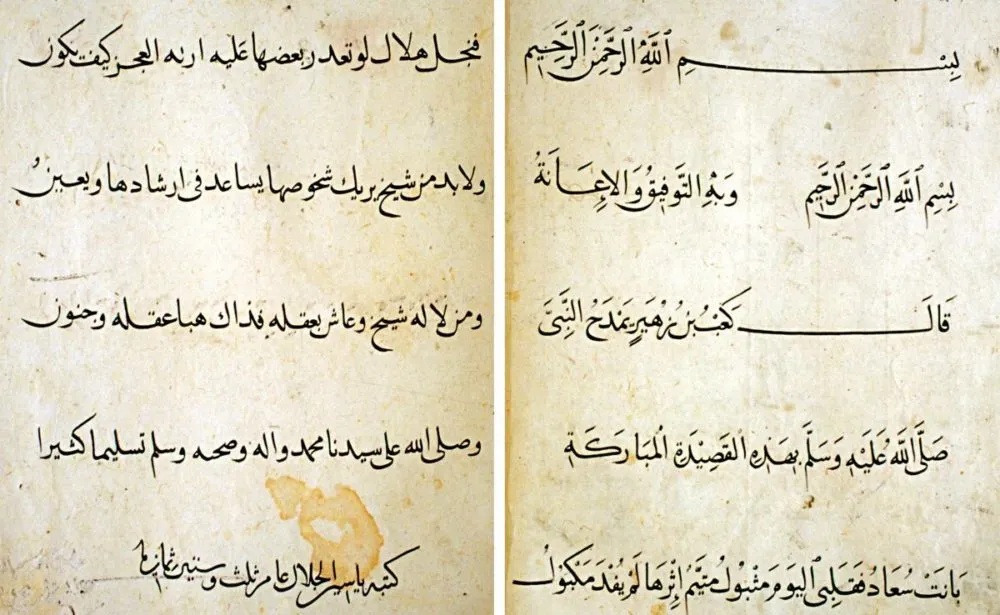 بِسْمِ ٱللَّهِ ٱلرَّحْمَٰنِ ٱلرَّحِيمِ
بِسْمِ ٱللَّهِ ٱلرَّحْمَٰنِ ٱلرَّحِيمِ وَبِهِ التَّوفِيقُ وَالإِعَانَةُ
قَالَ كَعْبُ بْنُ زُهَيْرٍ يَمْدَحُ النَّبِيَّ
صَلَّى اللَّهُ عَلَيْهِ وَسَلَّمَ بِهَذِهِ القَصِيْدَةِ المُبَارَكَةِ
بَانَتْ سُعَادُ فَقَلْبِي اليَوْمَ مَتْبُولُ مُتَيَّمٌ إِثْرَهَا لَمْ يُفْدَ مَكْبُولُ
هلال لو تعدر بعضها عليه اربه العجز كيف يكون
ولا بد من شيخ يريك شخوصها يساعد فى ارشادها ويعين
ومن لا له شيخ وعاش بعقله فذاك هبا عقله وجنون
وصلى الله على سيدنا محمد واله وصحبه وسلم تسليما كثيرا
كتبه ياسر الجلال عام ثلث وستين